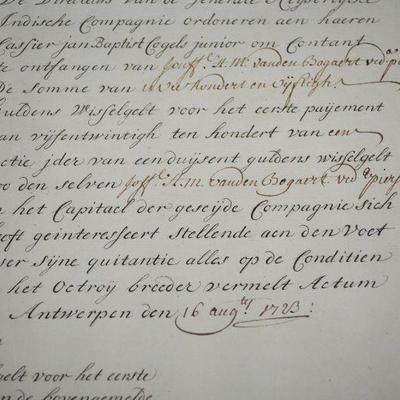 De Directeurs van de Generale Keyserlycke
Indische Compagnie ordoneren aen haeren
Cassier Jan Baptist Cogels junior om Contant
te ontfangen van Jouffe. A. M. vanden Bogaert
De somme van hondert en Vijftigh
guldens Wisselgelt voor het eerste paijement
van vijfentwintigh ten hondert van een
ctie jder van eenduijsent guldens wisselgelt
oo den selven Joffe. A. M. vanden Bogaert
n het Capitael der geseijde Compagnie sich
eeft geinteresseert stellende aen den voet
ser sijne quitantie alles op de Conditien
het Octroij breeder vermelt Actum
Antwerpen den 16 augty 1723:
gelt voor het eerste
n de bovengemelde